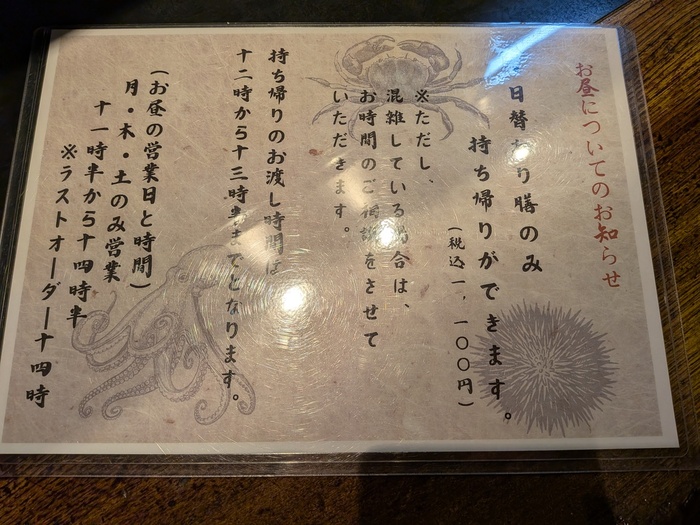 お昼についてのお知らせ
日替わり膳のみ
持ち帰りができます。
(税込一、一〇〇円)
※ただし、
混雑している場合は、
お時間のご相談をさせて
いただきます。
持ち帰りのお渡し時間は
十二時から十三時半までとなります。
(お昼の営業日と時間)
月・木・土のみ営業
十一時半から十四時半
※ラストオーダー十四時